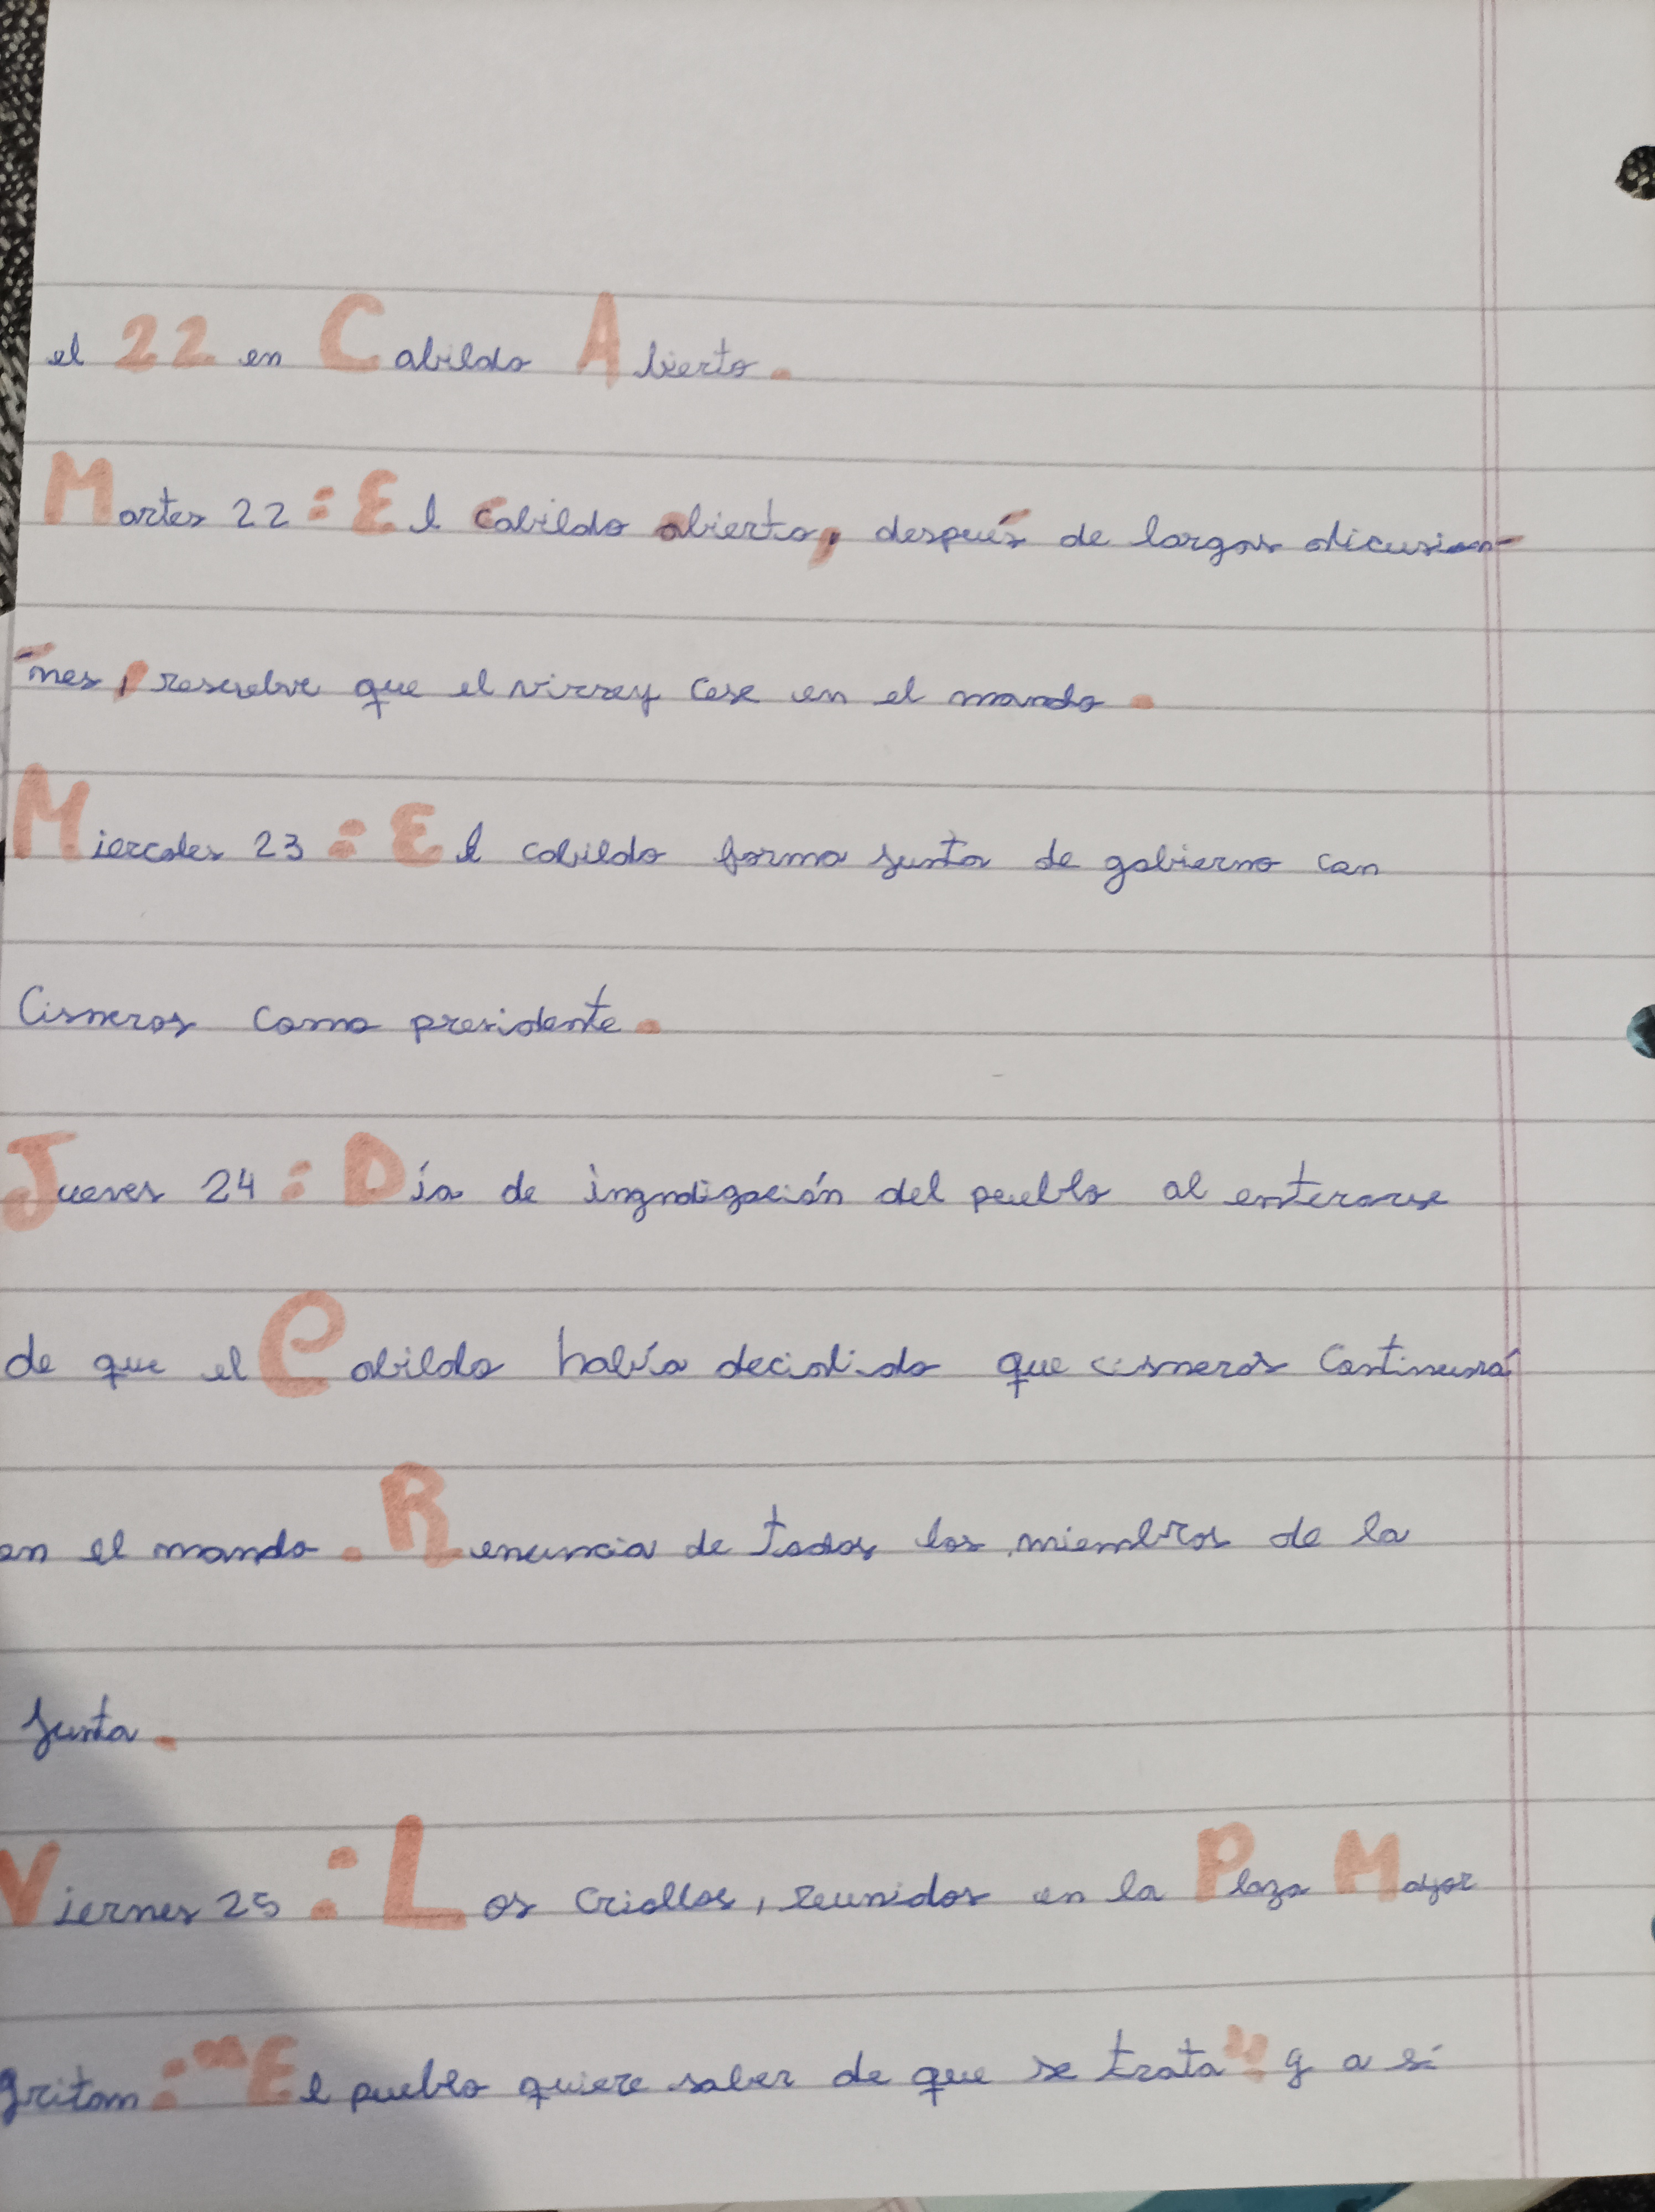 el 22 en Cabildo Abierto.
Martes 22: El Cabildo abierto, después de largas dicusion-
-nes, resuelve que el virrey cese en el mando.
Miercoles 23: El cabildo forma junta de gobierno con
Cisneros como presidente.
Jueves 24: Día de ingndigación del pueblo al enterarse
de que el Cabildo había decidido que cisneros Continuará
en el mando. Renuncia de todos los miembros de la
junta.
Viernes 25: Los criollos, reunidos en la Plaza Mayor
gritan: "El pueblo quiere saber de que se trata" y a si